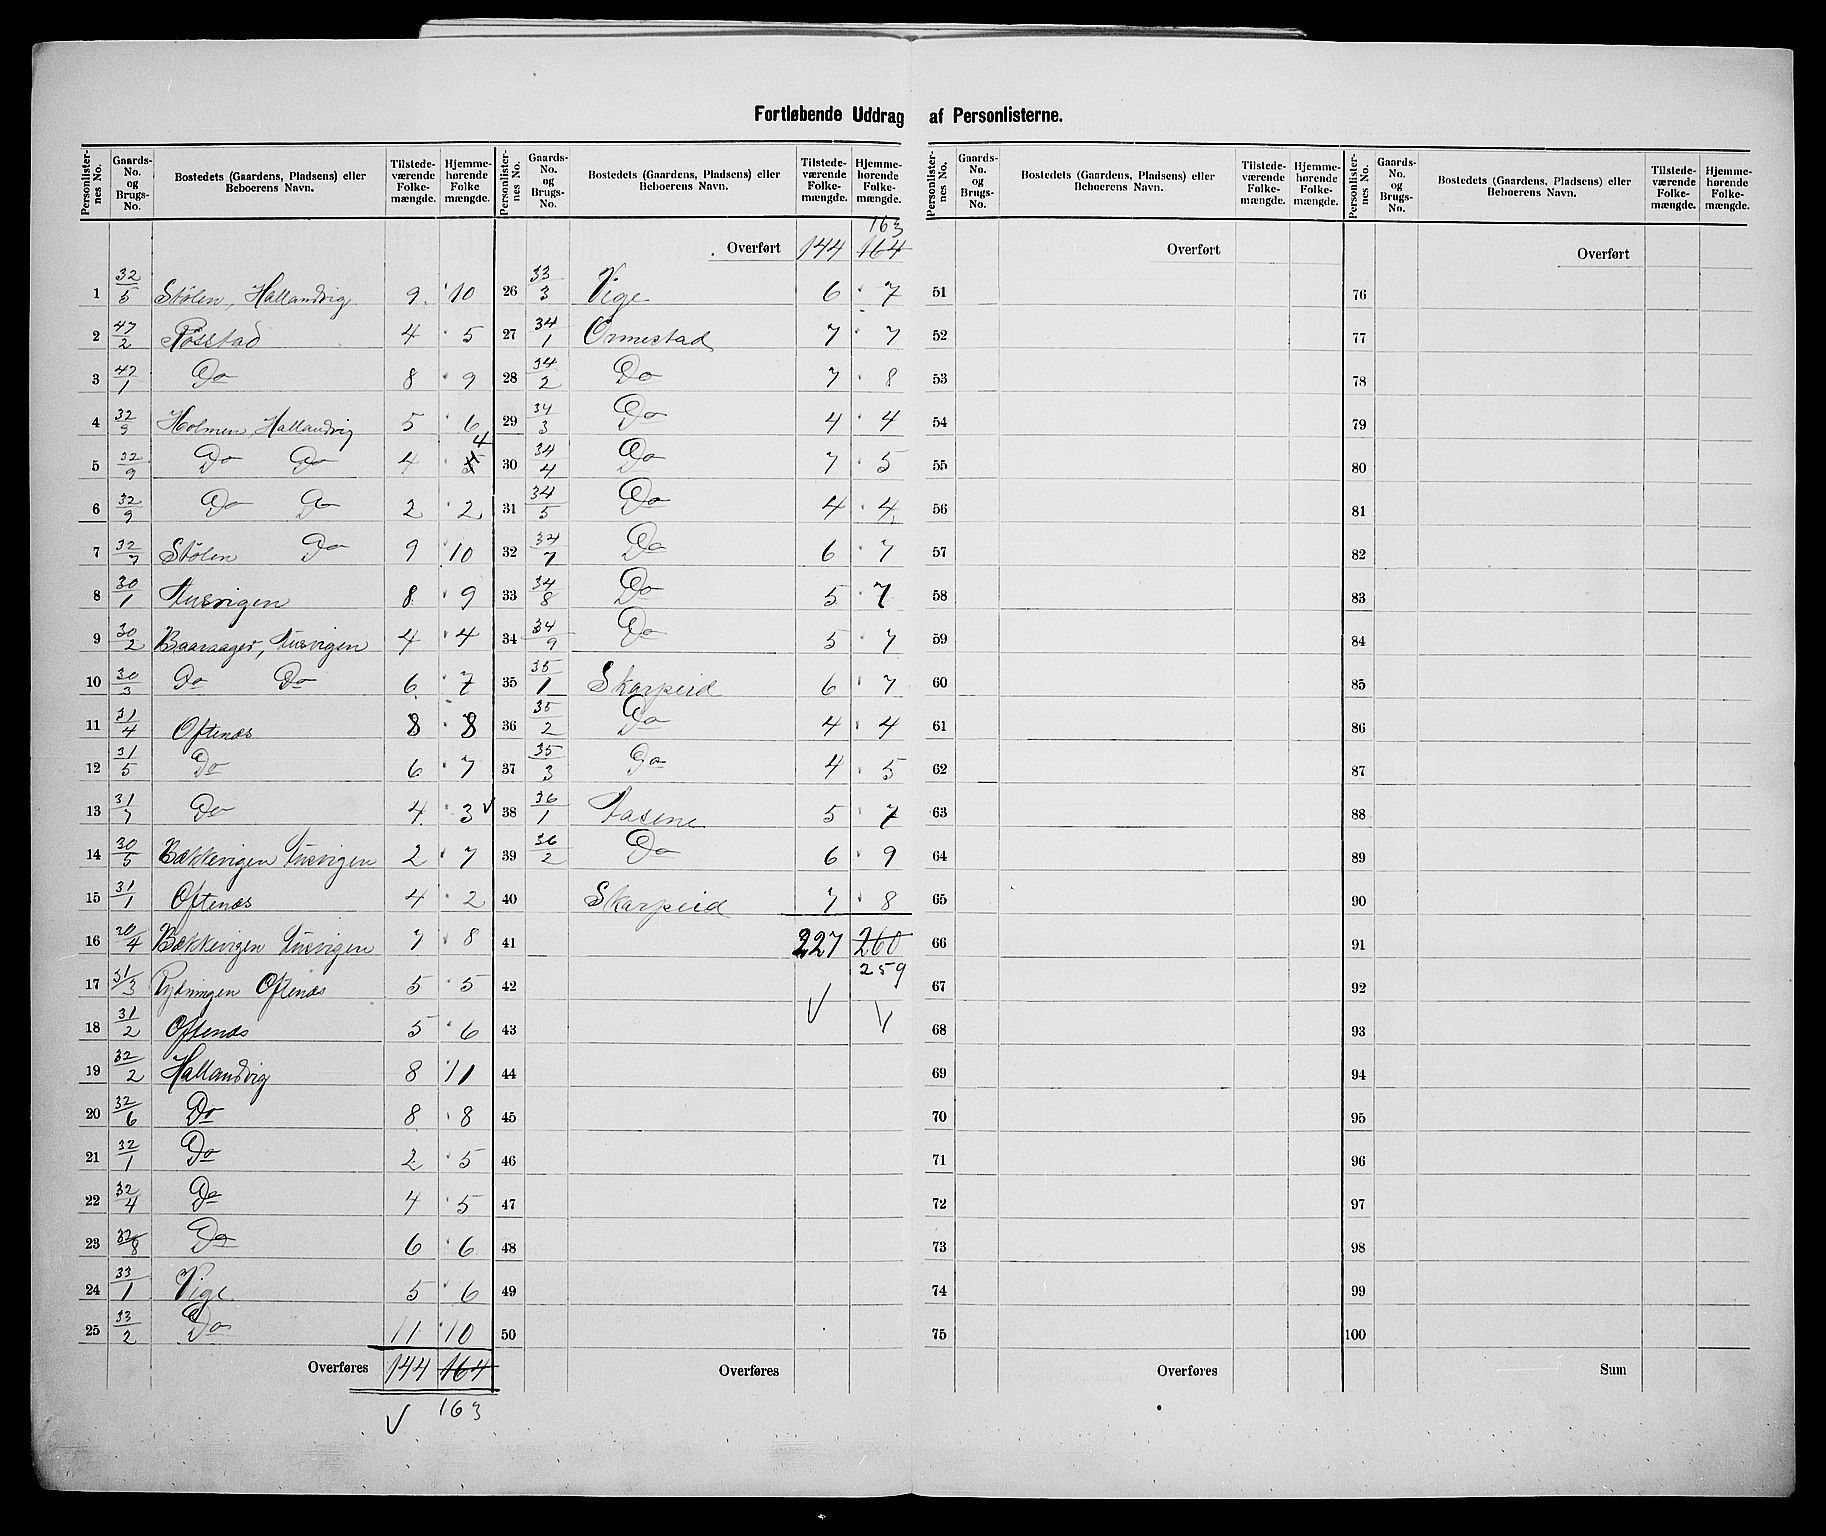 Fortløbende Uddrag af Personlisterne.
Personlister-nes No. | Gaards-No. og Brugs-No. | Bostedets (Gaardens, Pladsens) eller Beboerens Navn. | Tilstede-værende Folke-mængde. | Hjemme-hørende Folke mængde.
1 32/5 Stølen, Hallandvig 9 10
2 47/2 Rosstad 4 5
3 47/1 Do 8 9
4 32/9 Holmen, Hallandvig 5 6
5 32/9 Do Do 4 5 4
6 32/9 Do Do 2 2
7 32/7 Stølen Do 9 10
8 30/1 Tusvigen 8 9
9 30/2 Baaraager, Tusvigen 4 4
10 30/3 Do Do 6 7
11 31/4 Oftenæs 8 8
12 31/5 Do 6 7
13 31/7 Do 4 3 v
14 30/5 Bækkevigen Tusvigen 2 7
15 31/1 Oftenæs 4 2
16 20/4 Bækkevigen Tusvigen 7 8
17 31/3 Rydningen Oftenæs 5 5
18 31/2 Oftenæs 5 6
19 32/2 Hallandvig 8 11
20 32/6 Do 8 8
21 32/1 Do 2 5
22 32/4 Do 4 5
23 32/8 Do 6 6
24 33/1 Vige 5 6
25 33/2 Do 11 10
Overføres 144 164
v 163
Personlister-nes No. | Gaards-No. og Brugs-No. | Bostedets (Gaardens, Pladsens) eller Beboerens Navn. | Tilstede-værende Folke-mængde. | Hjemme-hørende Folke-mængde.
163
Overført 144 164
26 33/3 Vige 6 7
27 34/1 Ormestad 7 7
28 34/2 Do 7 8
29 34/3 Do 4 4
30 34/4 Do 7 5
31 34/5 Do 4 4
32 34/7 Do 6 7
33 34/8 Do 5 7
34 34/9 Do 5 7
35 35/1 Skarpeid 6 7
36 35/2 Do 4 4
37 35/3 Do 4 5
38 36/1 Aasene 5 7
39 36/2 Do 6 9
40 Skarpeid 7 8
41 227 260
259
42 v v
43
44
45
46
47
48
49
50
Overføres
Personlister-nes No. | Gaards-No. og Brugs-No. | Bostedets (Gaardens, Pladsens) eller Beboerens Navn. | Tilstede-værende Folke-mængde. | Hjemme-hørende Folke-mængde.
Overført
51
52
53
54
55
56
57
58
59
60
61
62
63
64
65
66
67
68
69
70
71
72
73
74
75
Overføres
Personlister-nes No. | Gaards-No. og Brugs-No. | Bostedets (Gaardens, Pladsens) eller Beboerens Navn. | Tilstede-værende Folke-mængde. | Hjemme-hørende Folke-mængde.
Overført
76
77
78
79
80
81
82
83
84
85
86
87
88
89
90
91
92
93
94
95
96
97
98
99
100
Sum